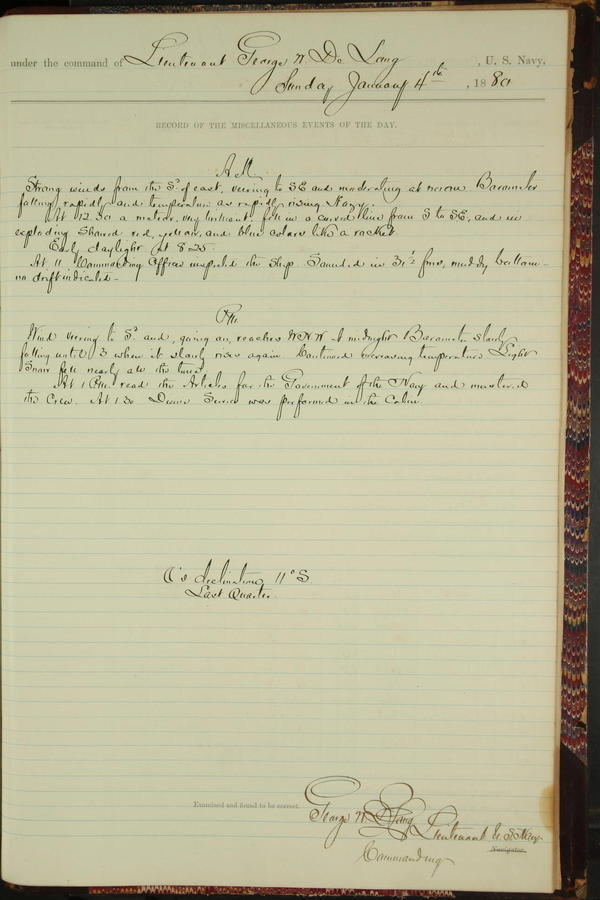 under the command of Lieutenant George W. De Long , U. S. Navy,
Sunday January 4th , 1880
RECORD OF THE MISCELLANEOUS EVENTS OF THE DAY.
A.M.
Strong winds from the Sd. of east, veering to SE and moderating at noon. Barometer
falling rapidly and temperature as rapidly rising. Hazy.
At 12.30 a meteor, very brilliant fell in a curved line from S to SE, and in
exploding showed red, yellow, and blue colors like a rocket.
Early daylight at 8.25
At 11 Commanding Officer inspected the ship. Sounded in 31½ fms, muddy bottom -
no drift indicated -
P.M.
Wind veering to Sd. and, going on, reaches WNW at midnight. Barometer slowly
falling until 3 when it slowly rises again. Continued increasing temperature. Light
Snow fell nearly all the time.
At 1 P.M. read the Articles for the Government of the Navy and mustered
the Crew. At 1.30 Divine Service was performed in the Cabin.
☾'s declination 11° S.
Last Quarter.
Examined and found to be correct.
George W. De Long Lieutenant U. S. Navy
Navigator.
Commanding